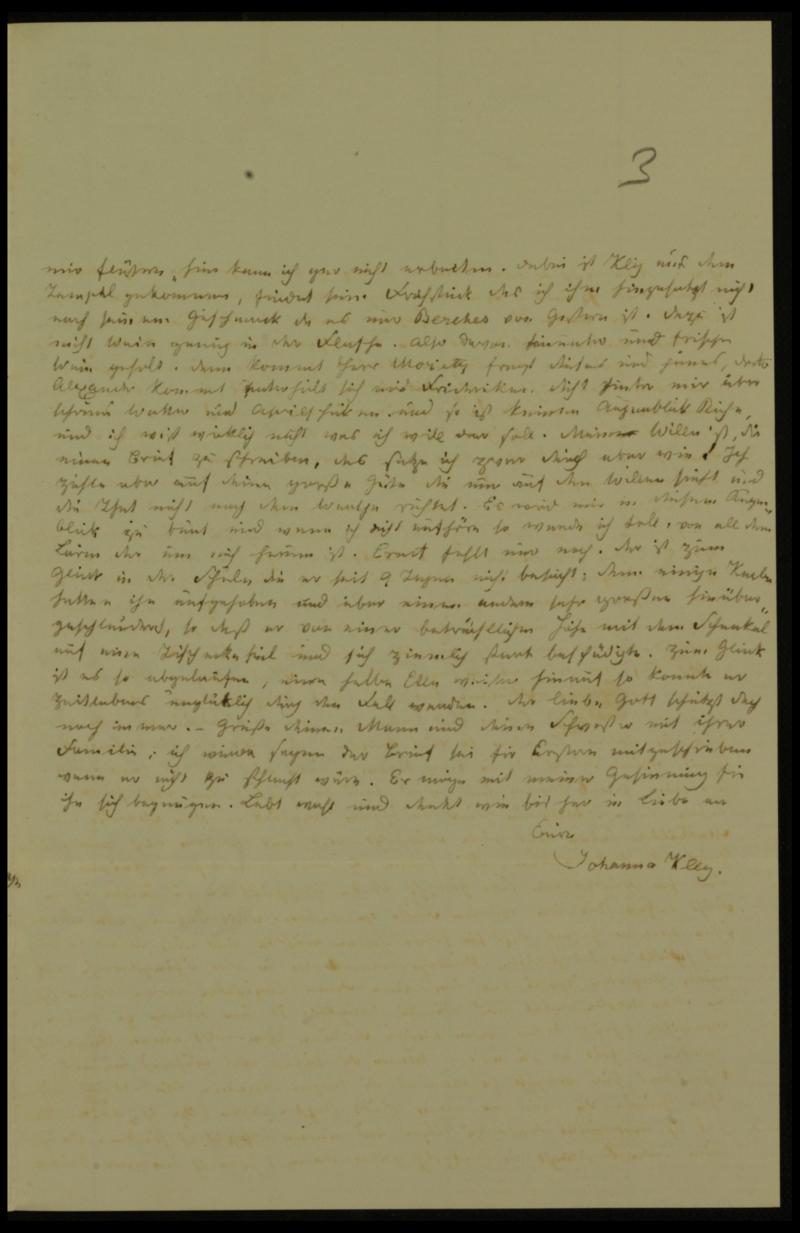 3
mir flüstern, hier kann ich gar nicht arbeiten. dabei ist Kley aus dem
Tempel gekommen, findet sein Frühstück das ich ihm hingesetzt nicht
nach seinem Geschmack da es nur Berches von Gestern ist. dazu ist
nicht Wein genug in der Flasche. Also davon herunter und frischen
Wein geholt. dann kommt Herr Moritz fragt dieses und jenes, dr
Alexander kommt unterhält sich mit Friederiken dicht hinter mir über
schönes Wetter und Aprilschicken und so ist keinen Augenblick Ruhe,
und ich weiß wirklich nicht was ich will oder soll. Mein Willen ist, dir
einen Brief zu schreiben, das setze ich zwar durch aber wie! Ich
zähle aber auf deine große Güte die nur auf den Willen sieht und
die That nicht nach dem Werthe richtet. Es wird mir in diesem Augen-
blick zu bunt und wenn ich nicht aufhöre so werde ich toll, von all dem
Lärm der um mich herum ist. Ernst fehlt nur noch. der ist zum
Glück in der Schule die er seit 9 Tagen nicht besucht; denn einige Knaben
hatten ihn aufgehoben und über einen andern sehr großen hinüber-
geschleudert, so daß er von einer beträchtlichen Höhe mit dem Schenkel
auf eine Tischecke fiel und sich ziemlich stark beschädigte. Zum Glück
ist es so abgelaufen, eine halbe Elle weiter hinauf so konnte er
zeitlebens unglücklich durch den Fall werden. der liebe Gott schützt doch
noch immer. – Grüße deinen Mann und deine Schwester mit ihrer
Familie; ich würde sagen der Brief sei für Erstern mitgeschrieben
wenn er nicht zu schlecht wäre. Er möge mit meiner Gesinnung für
ihn sich begnügen. Lebt wohl und denkt wie bisher in Liebe an
Eure
Johanna Kley.